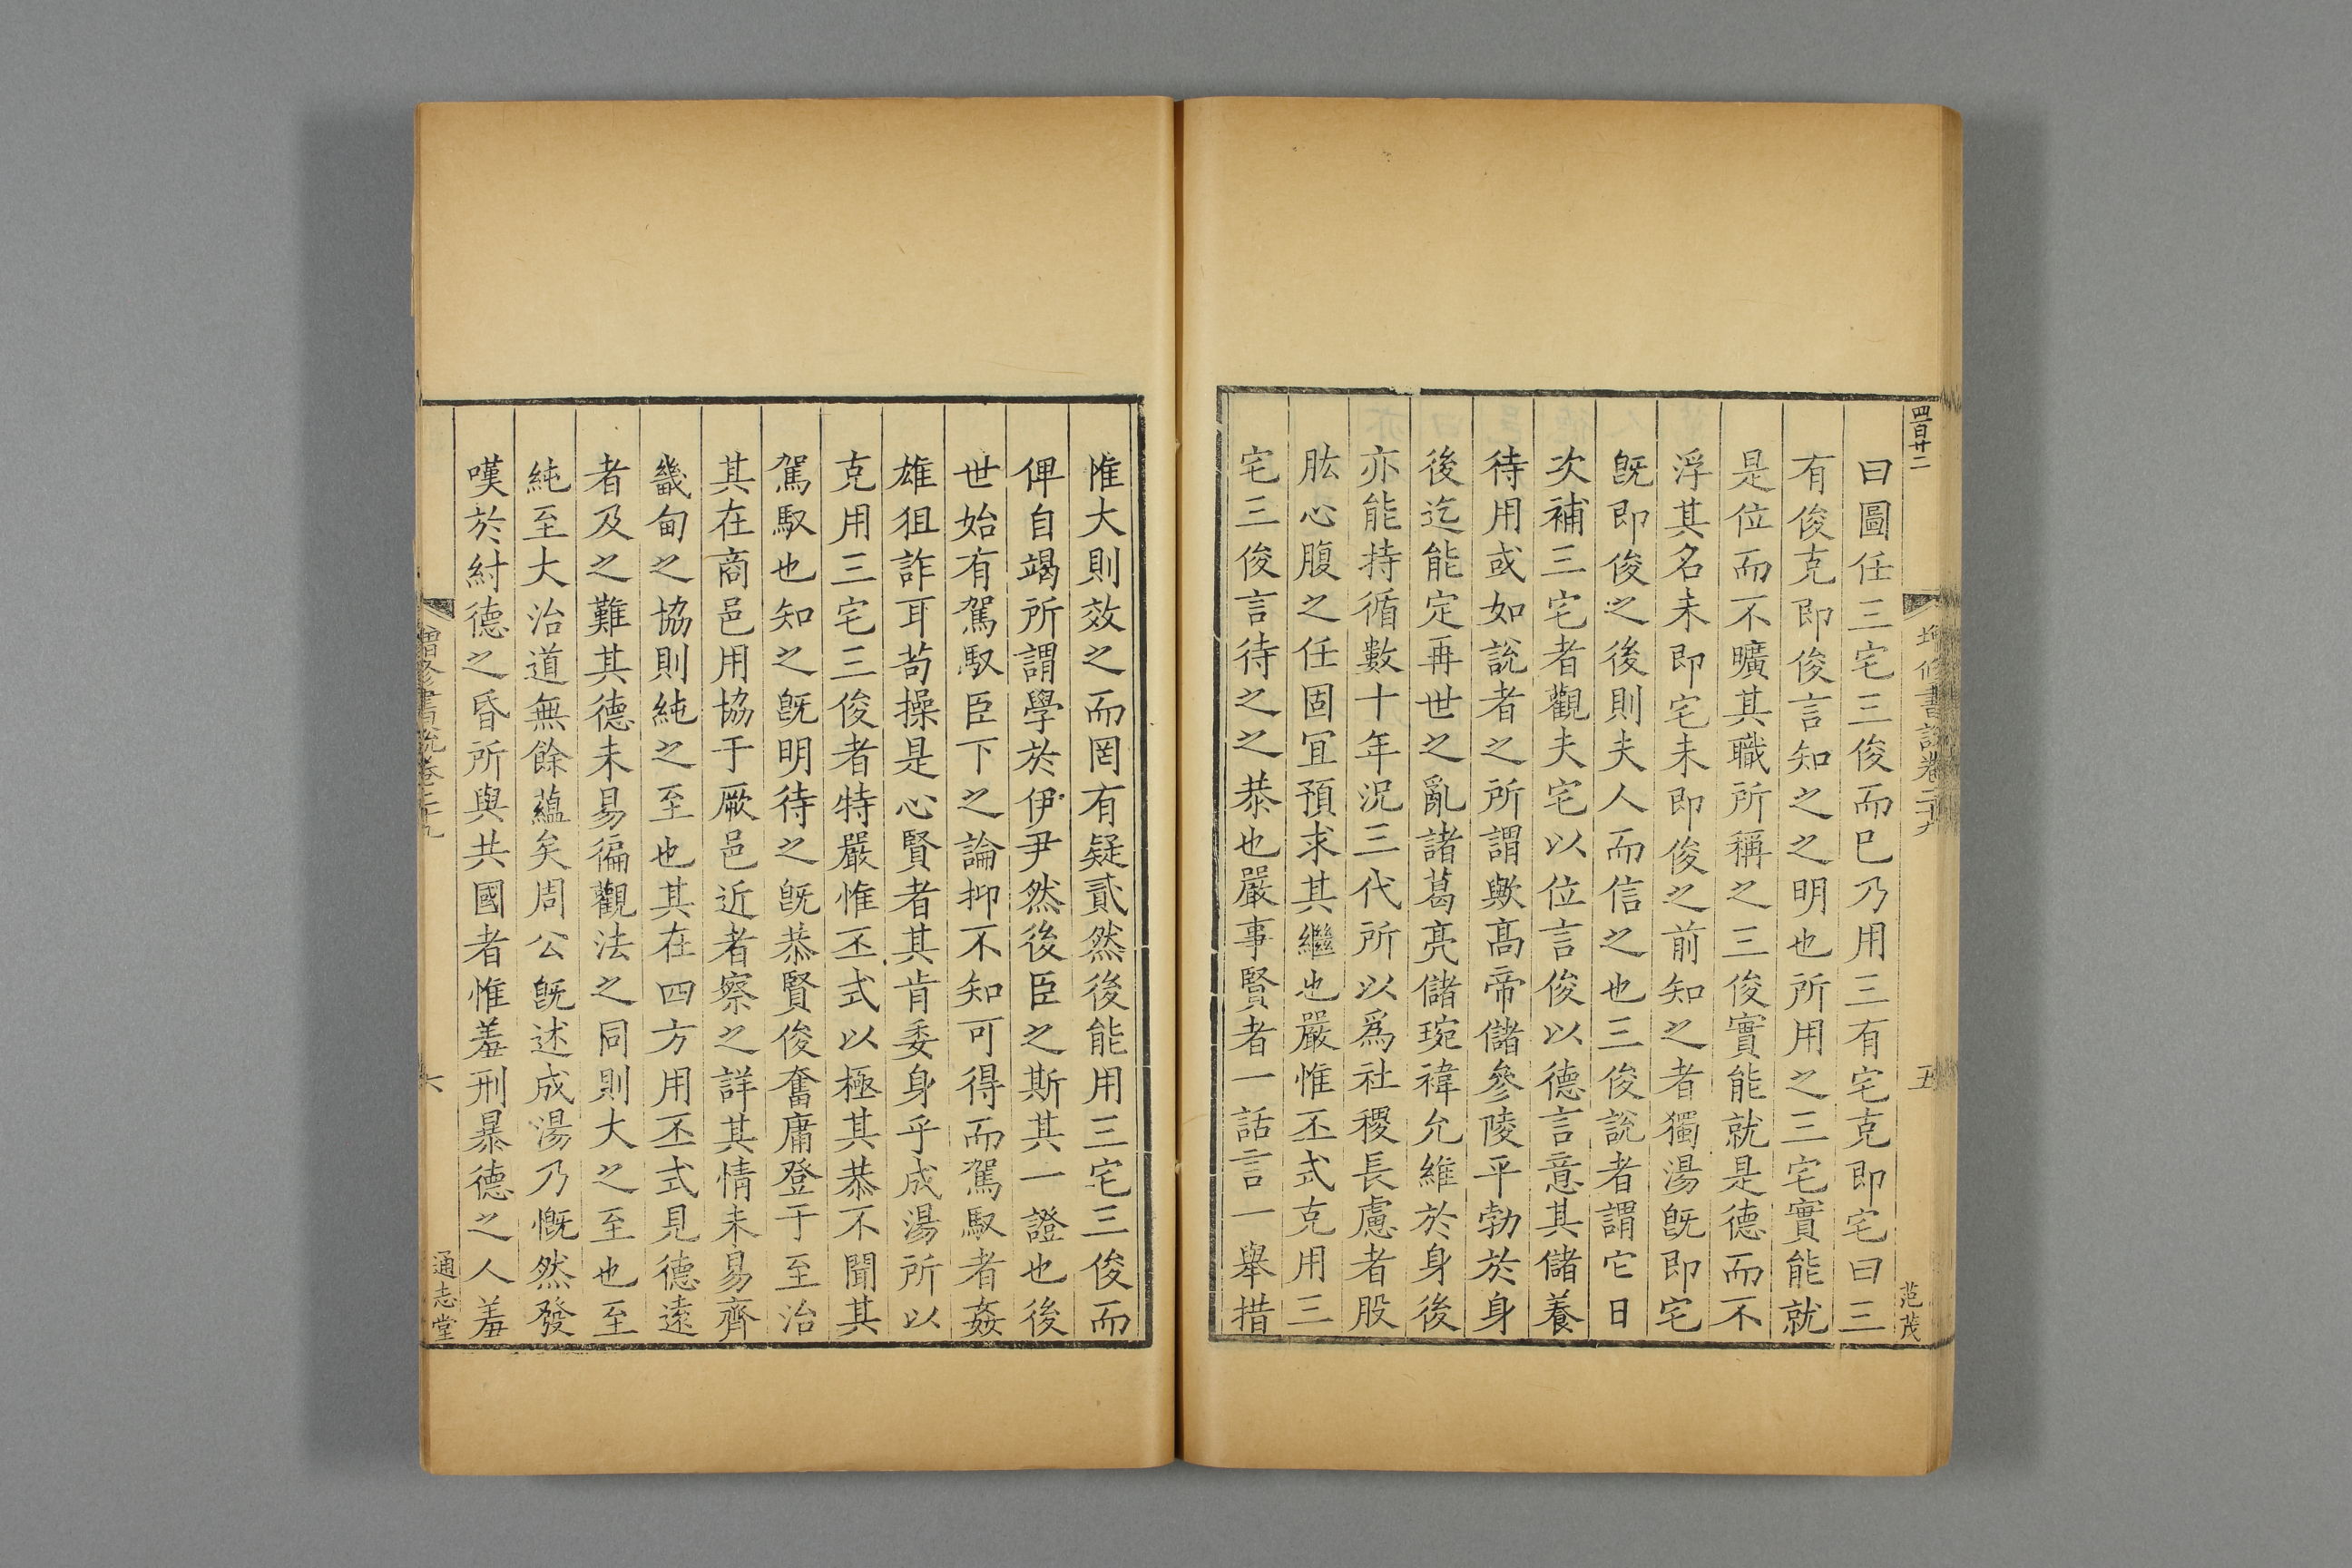 四百廿二
增修書說卷二十九
五
范茂
曰圖任三宅三俊而巳乃用三有宅克即宅曰三
有俊克即俊言知之之明也所用之三宅實能就
是位而不曠其職所稱之三俊實能就是德而不
浮其名未即宅未即俊之前知之者獨湯旣即宅
旣即俊之後則夫人而信之也三俊說者謂它日
次補三宅者觀夫宅以位言俊以德言意其儲養
待用或如說者之所謂歟髙帝儲參陵平勃於身
後迄能定再世之亂諸葛亮儲琬禕允維於身後
亦能持循數十年況三代所以爲社稷長慮者股
肱心腹之任固冝預求其繼也嚴惟丕式克用三
宅三俊言待之之恭也嚴事賢者一話言一舉措
惟大則效之而罔有疑貳然後能用三宅三俊而
俾自竭所謂學於伊尹然後臣之斯其一證也後
世始有駕馭臣下之論抑不知可得而駕馭者姦
雄狙詐耳苟操是心賢者其肯委身乎成湯所以
克用三宅三俊者特嚴惟丕式以極其恭不聞其
駕馭也知之旣明待之旣恭賢俊奮庸登于至治
其在商邑用協于厥邑近者察之詳其情未易齊
畿甸之協則純之至也其在四方用丕式見德遠
者及之難其德未易徧觀法之同則大之至也至
純至大治道無餘蘊矣周公旣述成湯乃慨然發
嘆於紂德之昏所與共國者惟羞刑暴德之人羞
增修書說卷二十九
六
通志堂